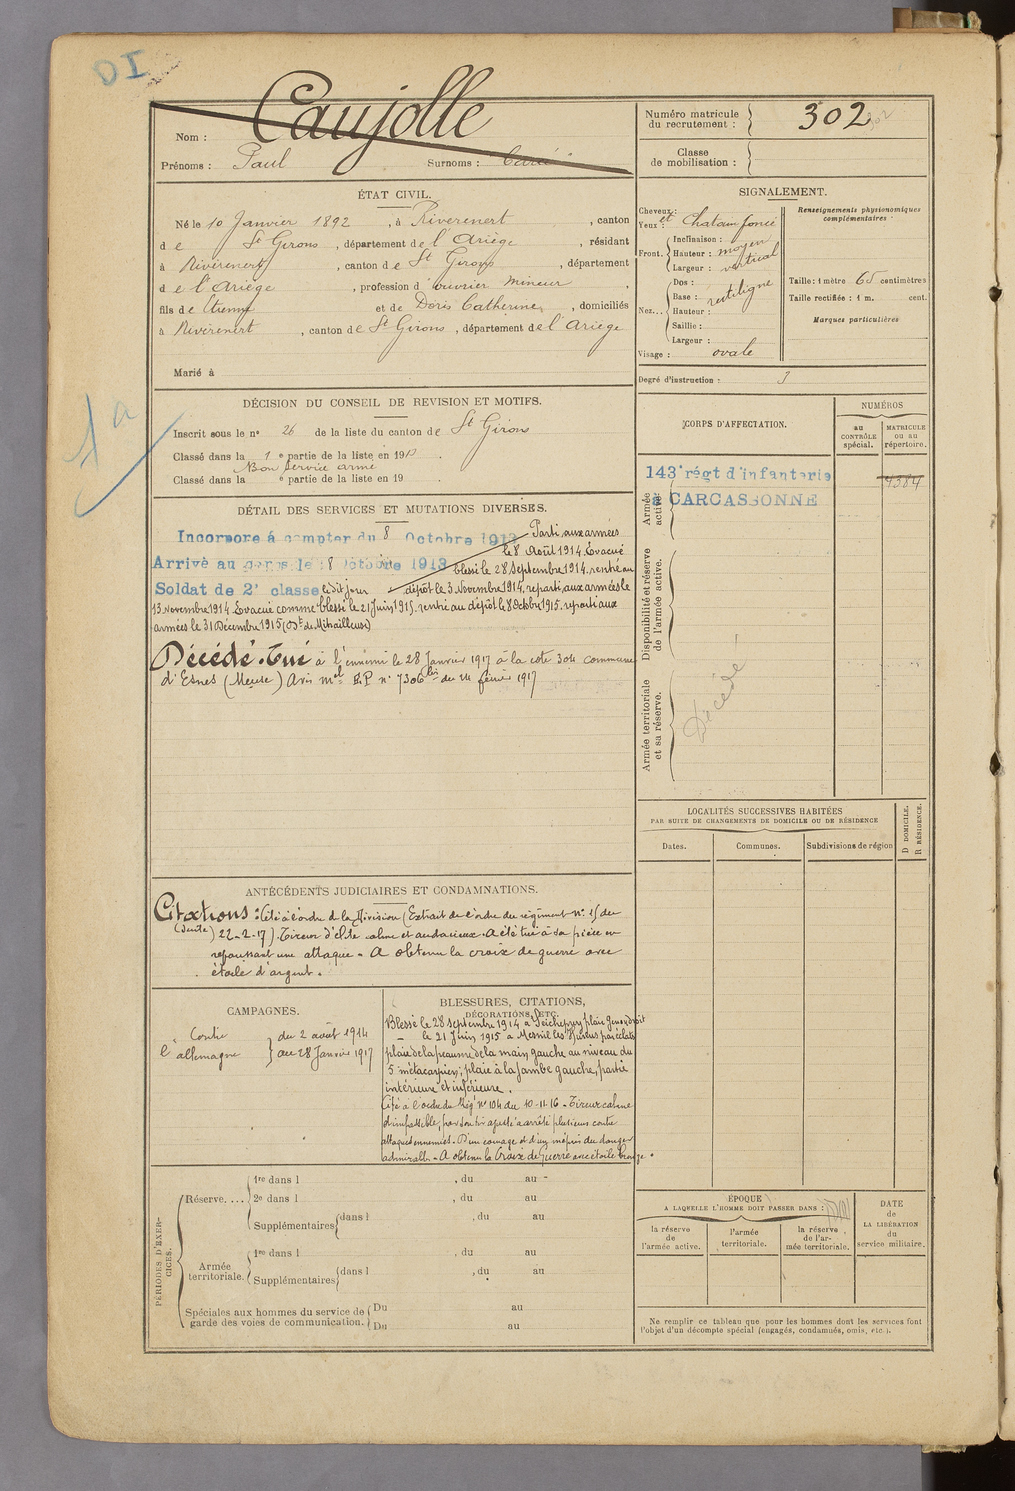 DI
Nom : Caujolle
Prénoms : Paul Surnoms :
Numéro matricule du recrutement : 302
302
Classe de mobilisation :
ÉTAT CIVIL.
Né le 10 Janvier 1892, à Riverenert, canton
de St Girons, département de l'Ariège, résidant
à Riverenert, canton de St Girons, département
de l'Ariège, profession d'ouvrier mineur,
fils de Etienne et de Doris Catherine, domiciliés
à Riverenert, canton de St Girons, département de l'Ariège
Marié à
SIGNALEMENT.
Cheveux :
Yeux : et Chatain foncé
Front. Inclinaison :
Hauteur : moyen
Largeur : vertical
Nez... Dos :
Base : rectiligne
Hauteur :
Saillie :
Largeur :
Visage : ovale
Renseignements physionomiques complémentaires.
Taille : 1 mètre 65 centimètres
Taille rectifiée : 1 m. cent.
Marques particulières
Degré d'instruction : 3
DÉCISION DU CONSEIL DE REVISION ET MOTIFS.
1a
Inscrit sous le n° 26 de la liste du canton de St Girons
Classé dans la 1e partie de la liste en 1913.
Bon service armé
Classé dans la e partie de la liste en 19
CORPS D'AFFECTATION.
NUMÉROS
au CONTRÔLE spécial.
MATRICULE ou au répertoire.
Armée active.
143e régt d'infanterie
à CARCASSONNE
4384
Disponibilité et réserve de l'armée active.
Armée territoriale et sa réserve.
Décédé
DÉTAIL DES SERVICES ET MUTATIONS DIVERSES.
Incorporé à compter du 8 Octobre 1913
Arrivé au corps le 8 Octobre 1913
Soldat de 2e classe ledit jour
Parti aux armées
le 8 Août 1914. Evacué
blessé le 28 Septembre 1914. rentré au
dépôt le 3 Novembre 1914. reparti aux armées le
13 novembre 1914. Evacué comme blessé le 21 Juin 1915. rentré au dépôt le 8 Octobre 1915. reparti aux
armées le 31 Décembre 1915 (Bt de Mitrailleuse)
Décédé. Tué à l'ennemi le 28 Janvier 1917 à la cote 304 commune
d'Esnes (Meuse) Avis mel E.P n° 7306 bis du 24 février 1917
LOCALITÉS SUCCESSIVES HABITÉES
PAR SUITE DE CHANGEMENTS DE DOMICILE OU DE RÉSIDENCE
Dates.
Communes.
Subdivisions de région
D DOMICILE.
R RÉSIDENCE.
ANTÉCÉDENTS JUDICIAIRES ET CONDAMNATIONS.
Citations : Cité à l'ordre de la Division (Extrait de l'ordre du régiment n° 15 du
(suite) 22-2-17). Tireur d'élite calme et audacieux. A été tué à sa pièce en
repoussant une attaque. A obtenu la croix de guerre avec
étoile d'argent.
CAMPAGNES.
Contre l'allemagne
du 2 août 1914
au 28 Janvier 1917
BLESSURES, CITATIONS,
DÉCORATIONS, ETC.
Blessé le 28 Septembre 1914 à Seicheprey plaie genou droit
— le 21 Juin 1915 à Mesnil les Hurlus par éclats
plaie de la peaume de la main gauche au niveau du
5e métacarpien; plaie à la Jambe gauche, partie
intérieure et inférieure.
Cité à l'ordre du Régt n° 104 du 10-11-16. Tireur calme
et impassible, par son tir ajusté a arrêté plusieurs contre
attaques ennemies. D'un courage et d'un mépris du danger
admirable. A obtenu la Croix de Guerre avec étoile bronze.
PÉRIODES D'EXERCICES.
Réserve....
1re dans l , du au
2e dans l , du au
Supplémentaires dans l , du au
Armée territoriale.
1re dans l , du au
Supplémentaires dans l , du au
Spéciales aux hommes du service de garde des voies de communication.
Du au
Du au
ÉPOQUE
A LAQUELLE L'HOMME DOIT PASSER DANS :
la réserve de l'armée active.
l'armée territoriale.
la réserve de l'armée territoriale.
DATE de LA LIBÉRATION du service militaire.
Ne remplir ce tableau que pour les hommes dont les services font
l'objet d'un décompte spécial (engagés, condamnés, omis, etc.).